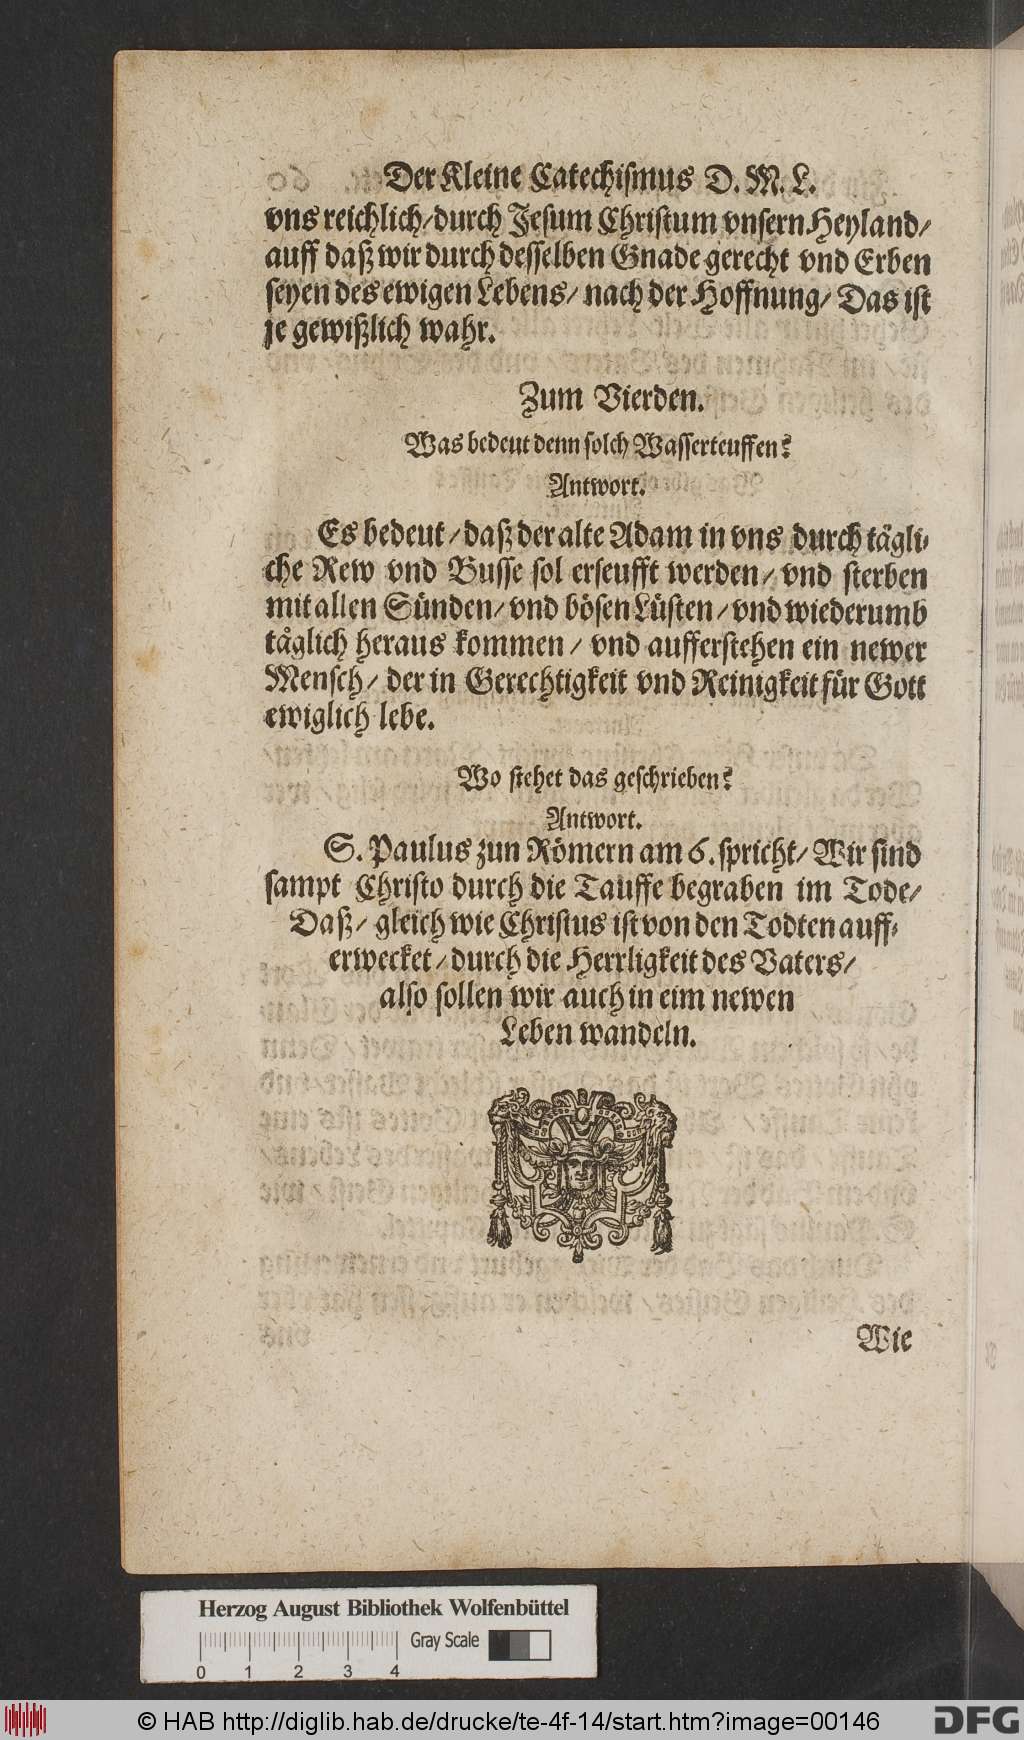 Der Kleine Catechismus D. M. L.
vns reichlich/durch Jesum Christum vnsern Heyland/
auff daß wir durch desselben Gnade gerecht vnd Erben
seyen des ewigen Lebens/ nach der Hoffnung/ Das ist
je gewißlich wahr.
Zum Vierden.
Was bedeut denn solch Wasserteuffen?
Antwort.
Es bedeut/daß der alte Adam in vns durch tägli-
che Rew vnd Busse sol erseufft werden/ vnd sterben
mit allen Sünden/ vnd bösen Lüsten/ vnd wiederumb
täglich heraus kommen/ vnd aufferstehen ein newer
Mensch/ der in Gerechtigkeit vnd Reinigkeit für Gott
ewiglich lebe.
Wo stehet das geschrieben?
Antwort.
S. Paulus zun Römern am 6. spricht/ Wir sind
sampt Christo durch die Tauffe begraben im Tode/
Daß/ gleich wie Christus ist von den Todten auff-
erwecket/durch die Herrligkeit des Vaters/
also sollen wir auch in eim newen
Leben wandeln.
Wie
Herzog August Bibliothek Wolfenbüttel
Gray Scale
0 1 2 3 4
© HAB http://diglib.hab.de/drucke/te-4f-14/start.htm?image=00146
DFG